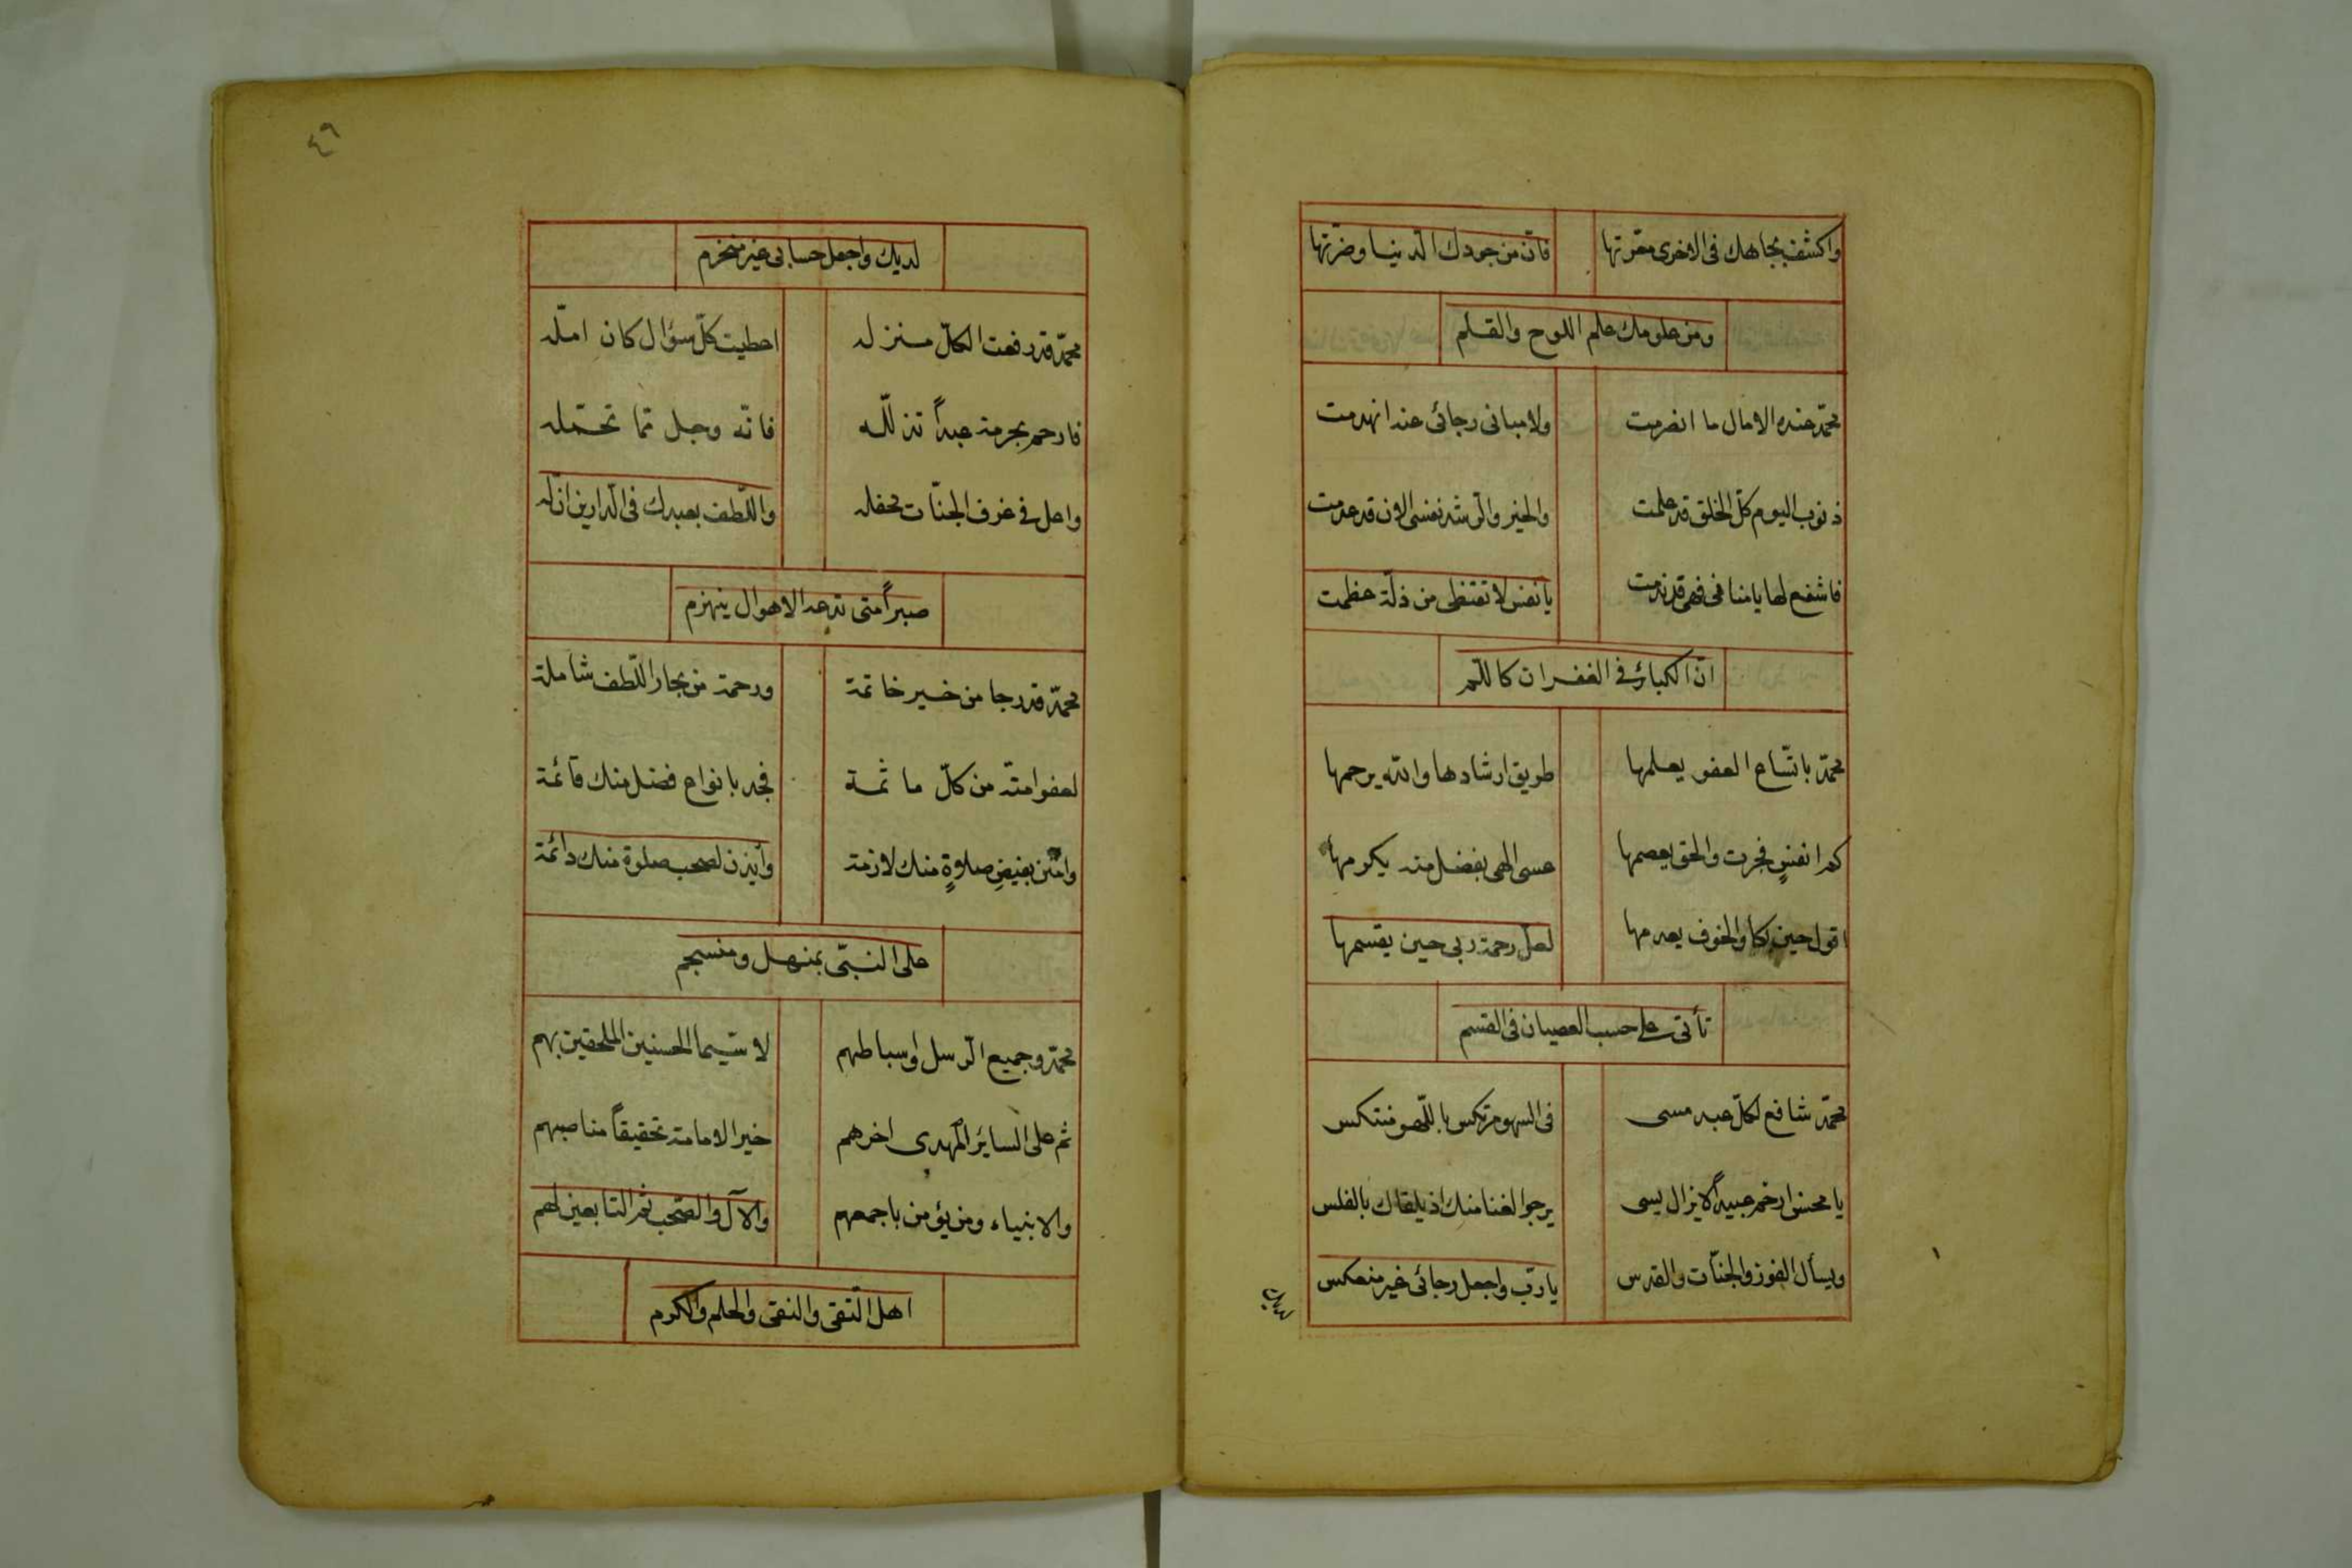 واكشف بجاهك فى الاخرى معرتها فان من جودك الدنيا وضرتها
ومن علومك علم اللوح والقلم
محمد عنده الامال ما انصرمت ولا مبانى رجائى عند انهدمت
ذنوب اليوم كل الخلق قد علمت والخير والرشد نفسى الان قد عدمت
فاشفع لها يا منافى فهى قد ندمت يا نفس لا تقنطى من ذلة عظمت
ان الكبائر فى الغفران كاللمم
محمد باتساع العفو يعلمها طريق ارشادها والله يرحمها
كم انفس فجرت والحق يعصمها عسى الهى بفضل منه يكرمها
اقول حين بكا والخوف يعدمها لعل رحمة ربى حين يقسمها
تأتى على حسب العصيان فى القسم
محمد شافع لكل عبد مسى فى السهو مرتكس باللهو منتكس
يا محسن ارحم عبيداً لا يزال يسى يرجو الغنا منك اذ يلقاك بالفلس
ويسأل الفوز والجنات والقدس يا رب واجعل رجائى غير منعكس
لديك
٤٦
لديك واجعل حسابى غير منخرم
محمد قد رفعت الكل منزله اعطيت كل سؤال كان امله
فارحم بحرمته عبداً تذلله فانه وجل مما تحمله
واعل فى غرف الجنات محفله والطف بعبدك فى الدارين ان له
صبراً متى تدعه الاهوال ينهزم
محمد قد رجا من خير خاتمة ورحمة من بحار اللطف شاملة
لعفو امته من كل ماثمة فجد بانواع فضل منك قائمة
وامنن بفيض صلاةٍ منك لازمة وأيذن لصحب صلوة منك دائمة
على النبى بمنهل ومنسجم
محمد وجميع الرسل اوسباطهم لا سيما الحسنين الملحقين بهم
ثم على السائر المهدى اخرهم خير الامامة تحقيقاً مناصبهم
والانبياء ومن يؤمن باجمعهم والآل والصحب ثم التابعين لهم
اهل التقى والنقى والحلم والكرم